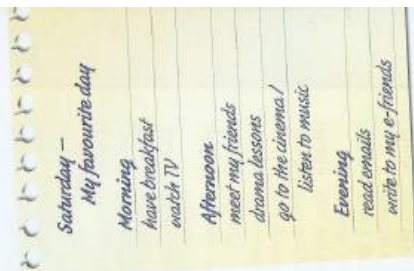 Saturday –
My favourite day
Morning
have breakfast
watch TV
Afternoon
meet my friends
drama lessons
go to the cinema/
listen to music
Evening
read emails
write to my e-friends